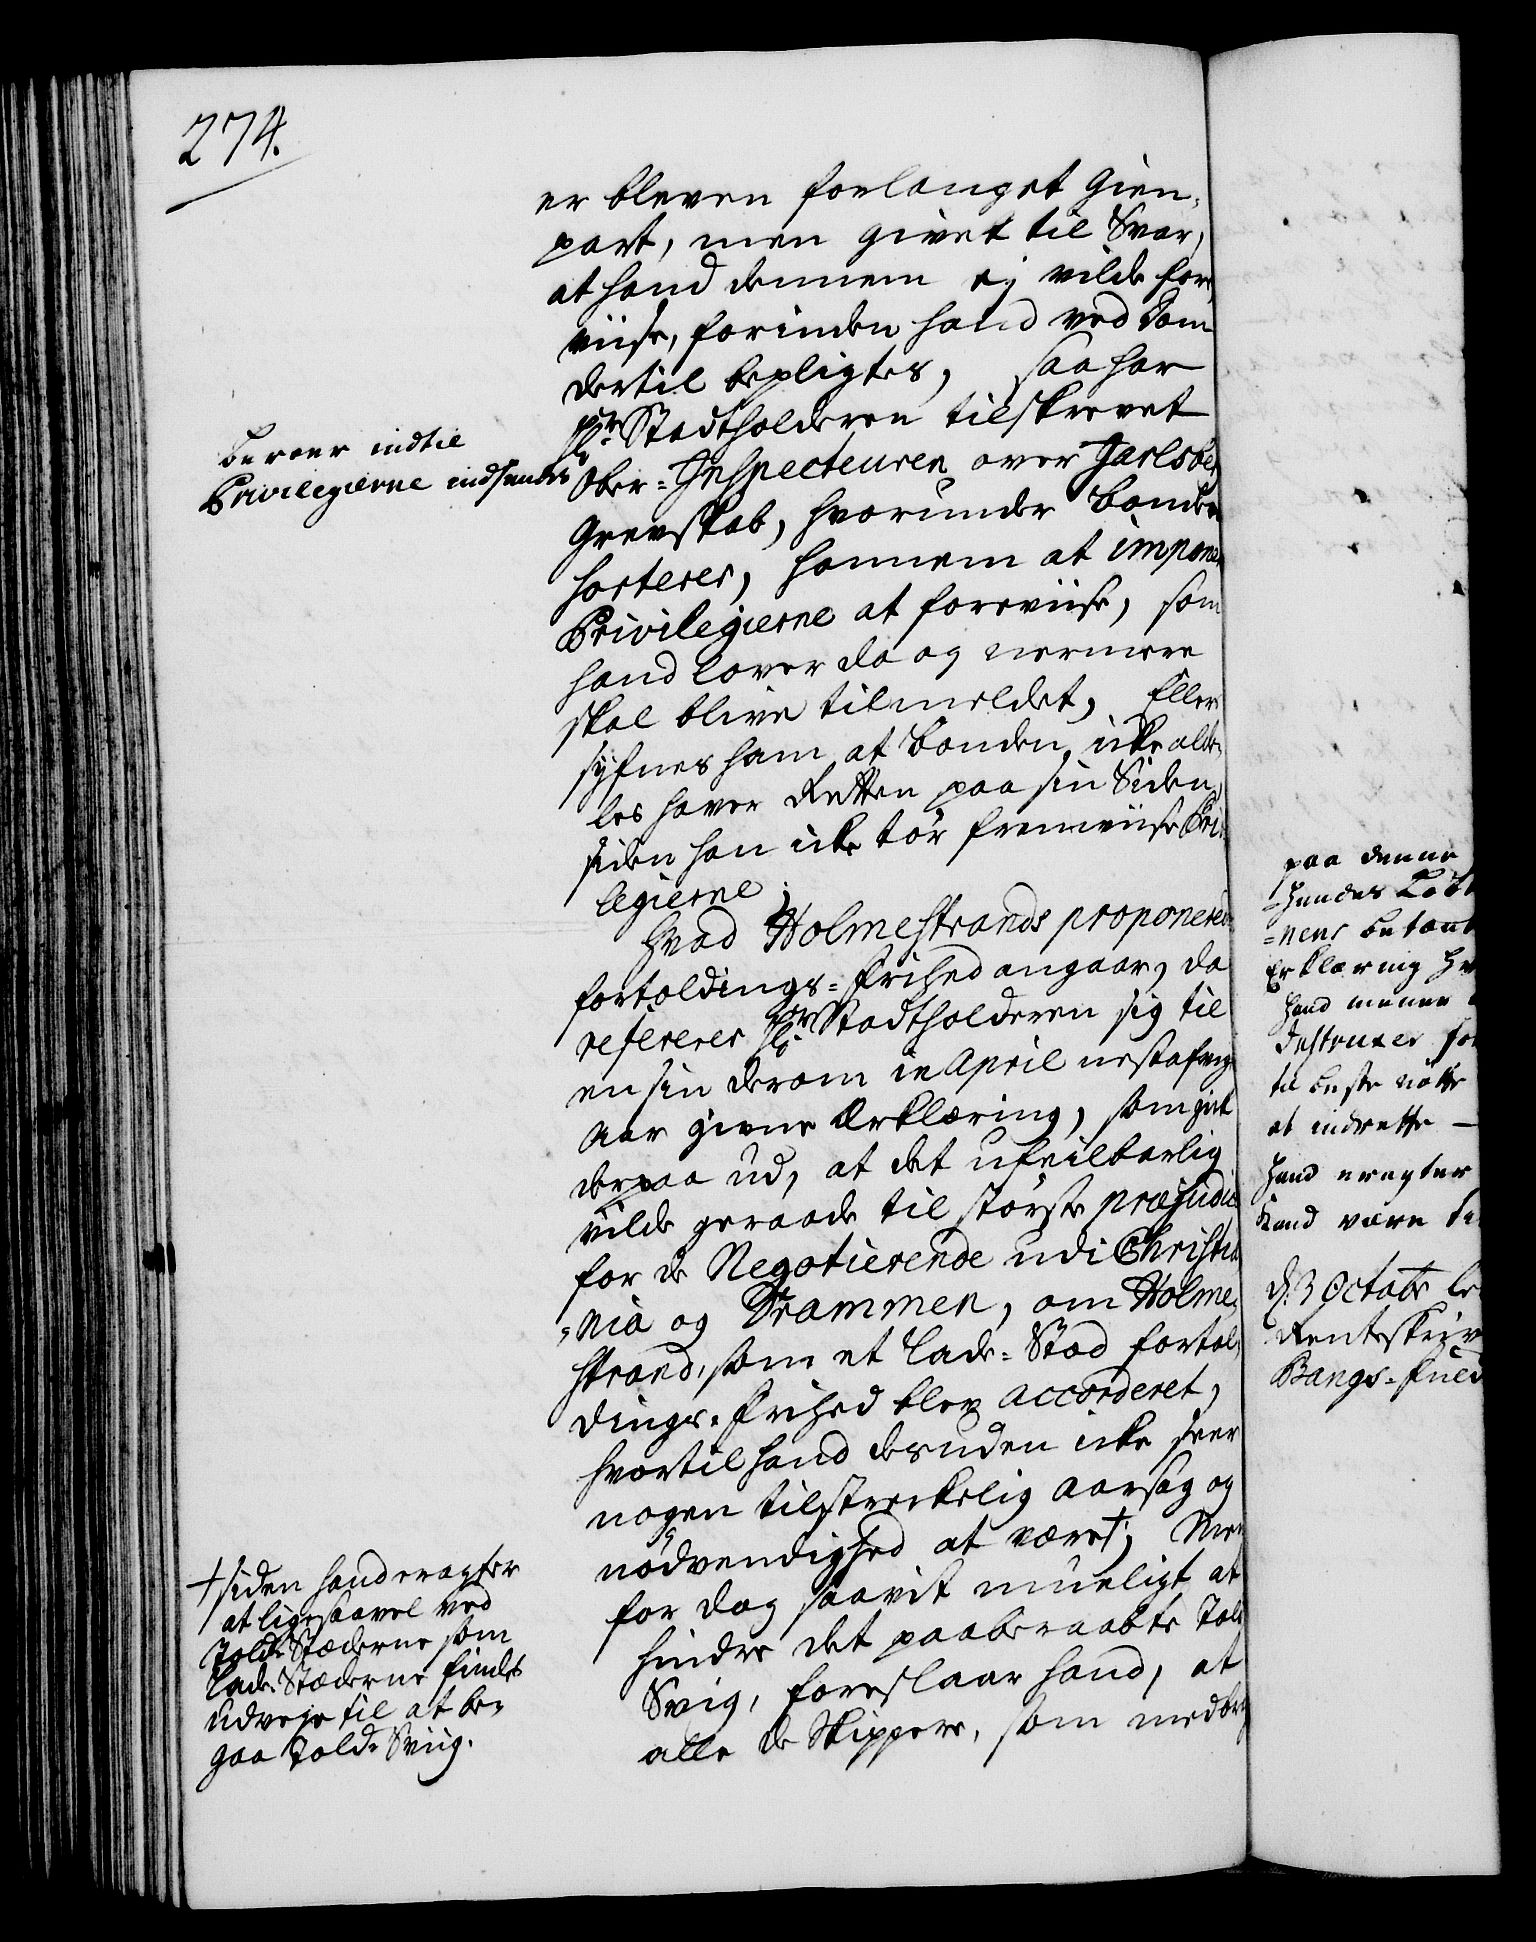 274.
er bleven forlanget Gien-
part, men givet til Svar,
at hand dennem ej vilde fore
viise, forinden hand ved Dom
dertil bepligtes, saa har
Hr Stadtholderen tilskrevet
Ober-Inspecteuren over Jarlsber
Grevskab, hvorunder bonden
sorterer, hannem at impone
Privilegierne at foreviise, som
hand lover da og nermere
skal blive tilmeldet, Ellers
syfnes ham at bonden icke alde-
les haver Retten paa sin Siden,
siden han icke tør fremviise Privi
legierne;
Hvad Holmestrands proponered
fortoldings-frihed angaar, da
refererer Hr Stadtholderen sig til
en sin derom in April nestafvig
Aar givne Erklæring, som gik
derpaa ud, at det ufeilbarlig
vilde geraade til største præjudice
for de Negotierende udi Christia
-nia og Drammen, om Holme-
strand, som et Lade-Stad fortol-
dings-frihed blev accorderet,
hvortil hand desuden icke seer
nogen tilstreckelig Aarsag og
nødvendighed at være†; Men
for dog saavit mueligt at
hindre det paaberaabte Told
Svig, foreslaar hand, at
alle de Skippere, som medbring
beroer indtil
Privilegierne indsendes
†siden hand eragter
at ligesaavel ved
Told-Stæderne som
Lade-Stæderne findes
udveje til at be-
gaa Told-Sviig.
paa denne
-hendes
-nens betænk
Erklæring
hand mener
til beste
at indrette —
hand eragter
kand være
d. 3 Octobr
Rentskriv
Bangs-